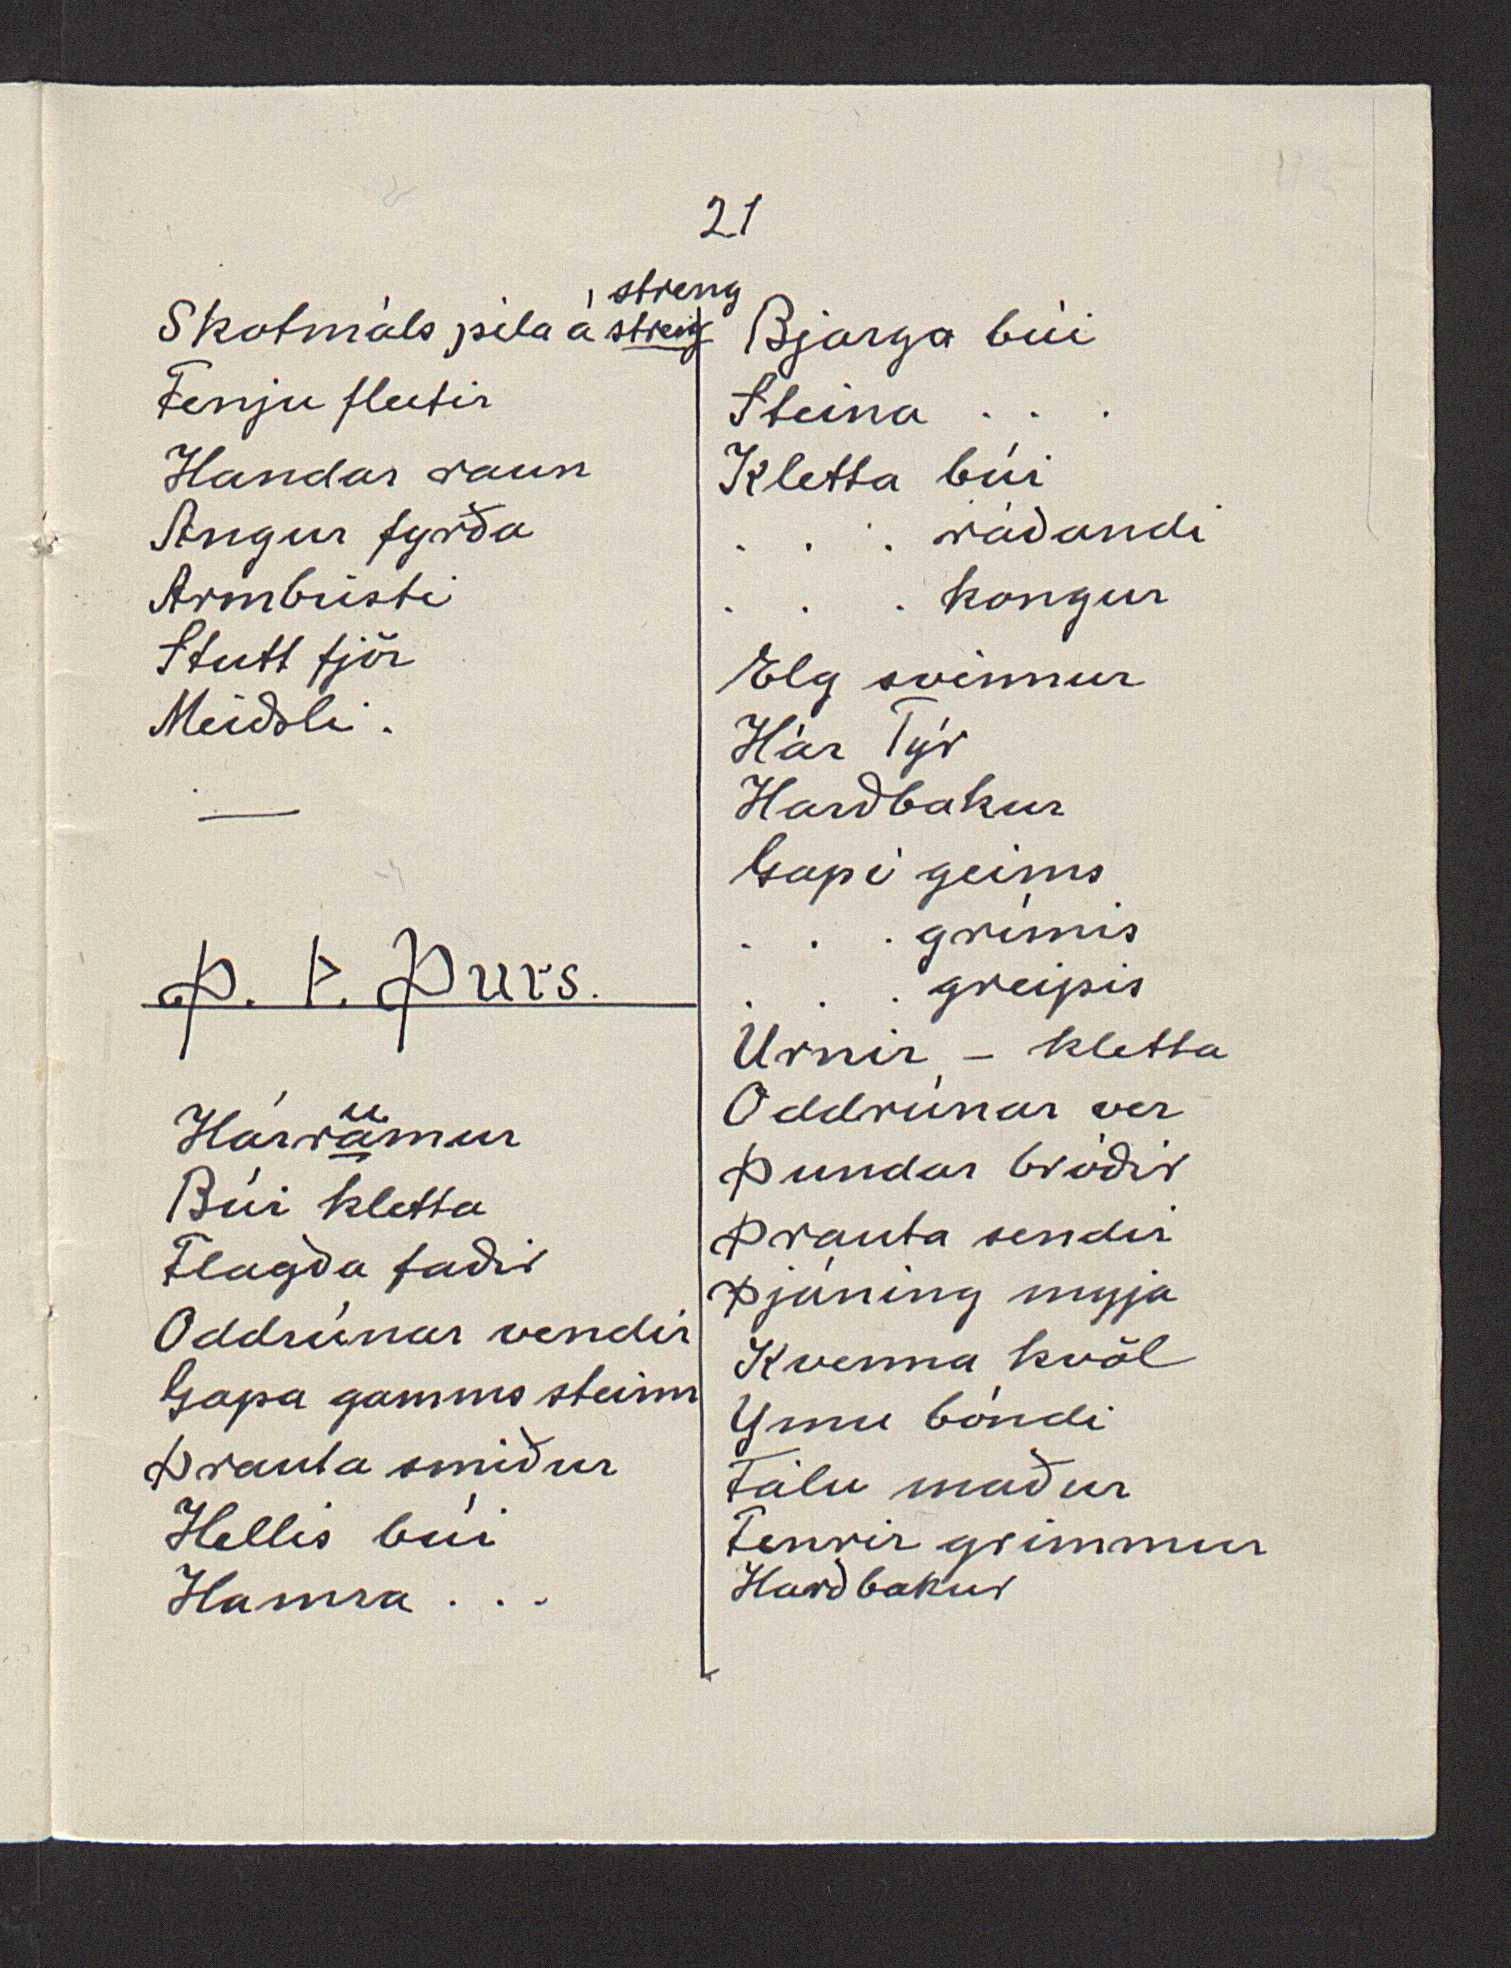 21
streng
Skotmáls píla á streng
Fenju fleitir
Handar raun
Angur fyrða
Armbústi
Stutt fjör
Meiðsli.
Þ. ᚦ. Þurs.
Hárrämur
u
Búi kletta
Flagða faðir
Oddrúnar vendir
Gapa gamms steinn
Þrauta smiður
Hellis búi
Hamra . . .
Bjarga búi
Steina . . .
Kletta búi
. . . ráðandi
. . . kongur
Elg svinnur
Hár Týr
Harðbakur
Gapi geims
. . . grímis
. . . greipis
Urnir - kletta
Oddrúnar ver
Þundar bróðir
Þrauta sendir
Þjáning myja
Kvenna kvöl
Ymu bóndi
Fálu maður
Fenrir grimmur
Harðbakur